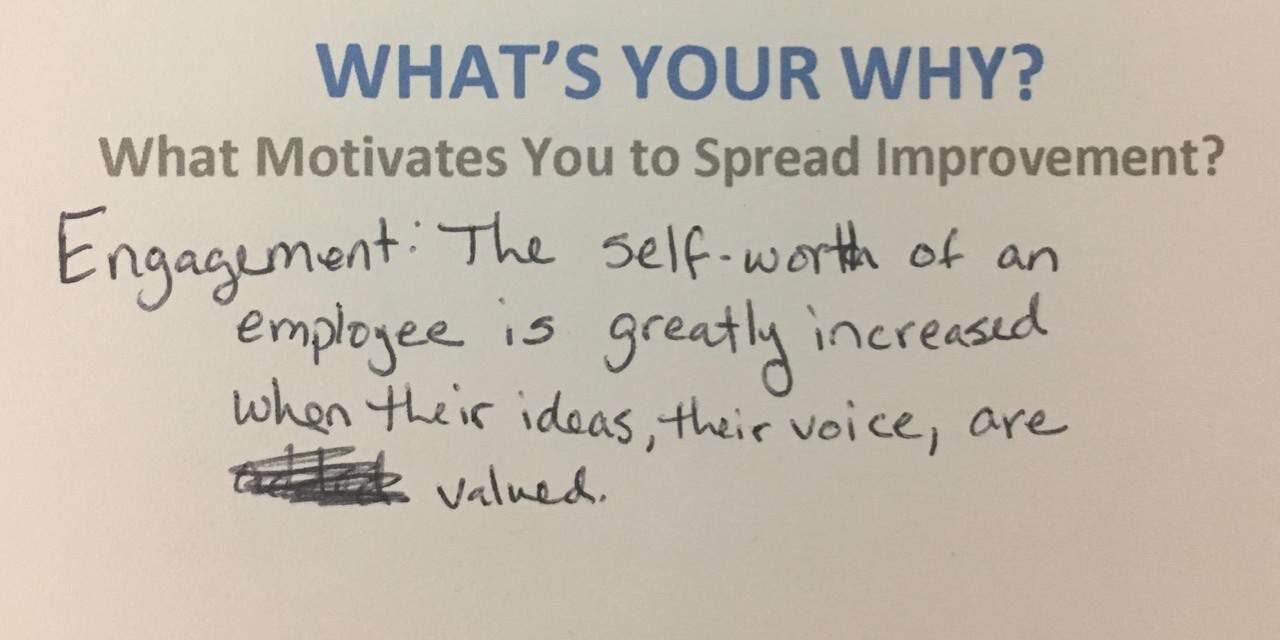 WHAT'S YOUR WHY?
What Motivates You to Spread Improvement?
Engagement: The self-worth of an
employee is greatly increased
when their ideas, their voice, are
valued.